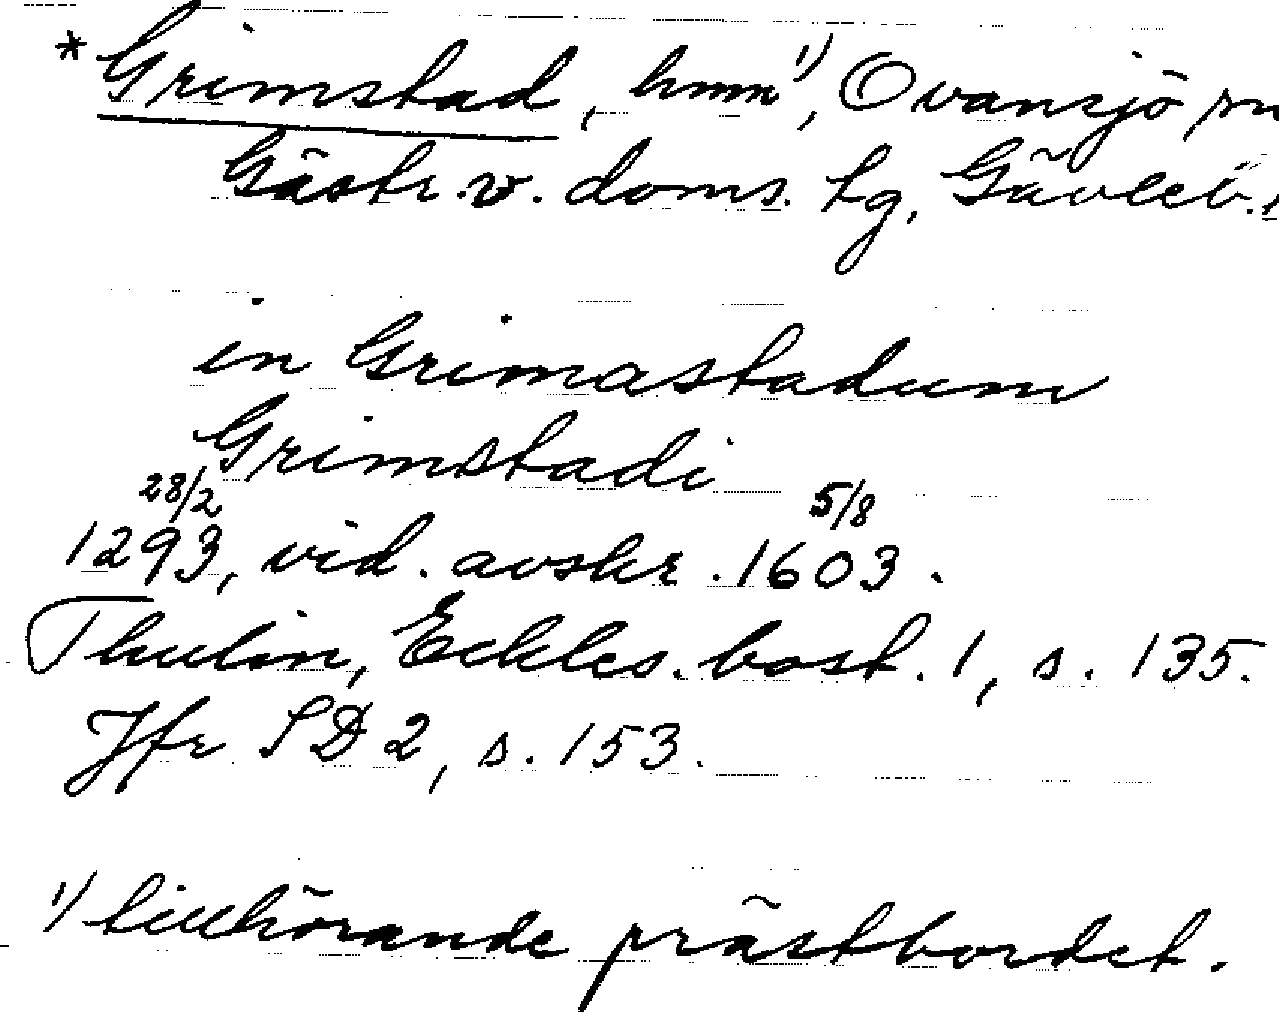 *Grimstad, hmm¹⁾, Ovansjö sn
Gästr. v. doms. tg, Gävleb. l
in Grimastadum
Grimstadi
28/2 5/8
1293, vid. avskr. 1603.
Thulin, Eckles. bost. 1, s. 135.
Jfr SD 2, s. 153.
¹⁾ tillhörande prästbordet.